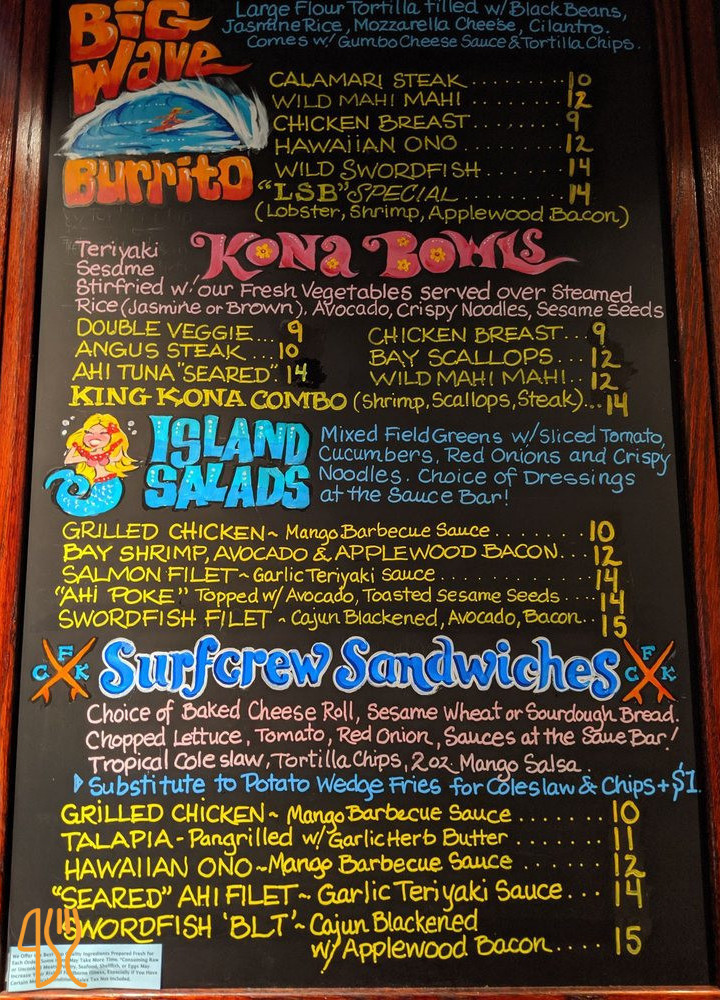 BiG
Wave
Burrito
Large Flour Tortilla filled w/ Black Beans,
Jasmine Rice, Mozzarella Cheese, Cilantro.
Comes w/ Gumbo Cheese Sauce & Tortilla Chips.
CALAMARI STEAK .......... 10
WILD MAHI MAHI ........ 12
CHICKEN BREAST ........ 9
HAWAiiAN ONO ......... 12
WILD SWORDFISH ....... 14
"LSB" SPECIAL .......... 14
(Lobster, Shrimp, Applewood Bacon)
KONA BOWLS
Teriyaki
Sesame
Stirfried w/ our Fresh Vegetables served over Steamed
Rice (Jasmine or Brown), Avocado, Crispy Noodles, Sesame Seeds
DOUBLE VEGGIE... 9 CHICKEN BREAST... 9
ANGUS STEAK... 10 BAY SCALLOPS.... 12
AHI TUNA "SEARED". 14 WILD MAHI MAHI.. 12
KING KONA COMBO (Shrimp, Scallops, Steak)... 14
ISLAND
SALADS
Mixed Field Greens w/ Sliced Tomato,
Cucumbers, Red Onions and Crispy
Noodles. Choice of Dressings
at the Sauce Bar!
GRILLED CHICKEN ~ Mango Barbecue Sauce .......... 10
BAY SHRIMP, AVOCADO & APPLEWOOD BACON.... 12
SALMON FILET ~ Garlic Teriyaki Sauce ............ 14
"AHI POKE" Topped w/ Avocado, Toasted Sesame Seeds .. 14
SWORDFISH FILET ~ Cajun Blackened, Avocado, Bacon.... 15
CFK Surfcrew Sandwiches CFK
Choice of Baked Cheese Roll, Sesame Wheat or Sourdough Bread.
Chopped Lettuce, Tomato, Red Onion, Sauces at the Saue Bar!
Tropical Cole slaw, Tortilla Chips, 2oz Mango Salsa.
Substitute to Potato Wedge Fries for Coleslaw & Chips + $1.
GRILLED CHiCKEN ~ Mango Barbecue Sauce ....... 10
TALAPIA - Pangrilled w/ Garlic Herb Butter ....... 11
HAWAIIAN ONO ~ Mango Barbecue Sauce ....... 12
"SEARED" AHI FILET ~ Garlic Teriyaki Sauce .... 14
SWORDFISH 'BLT' ~ Cajun Blackened
w/ Applewood Bacon.... 15